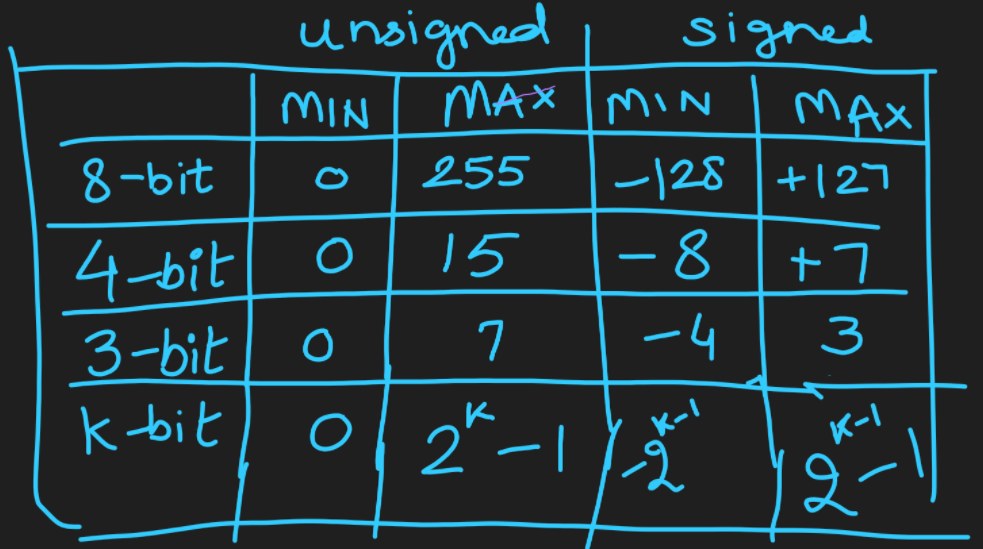 unsigned signed
MIN MAX MIN MAX
8-bit 0 255 -128 +127
4-bit 0 15 -8 +7
3-bit 0 7 -4 3
k-bit 0 2^k-1 -2^k-1 2^k-1-1